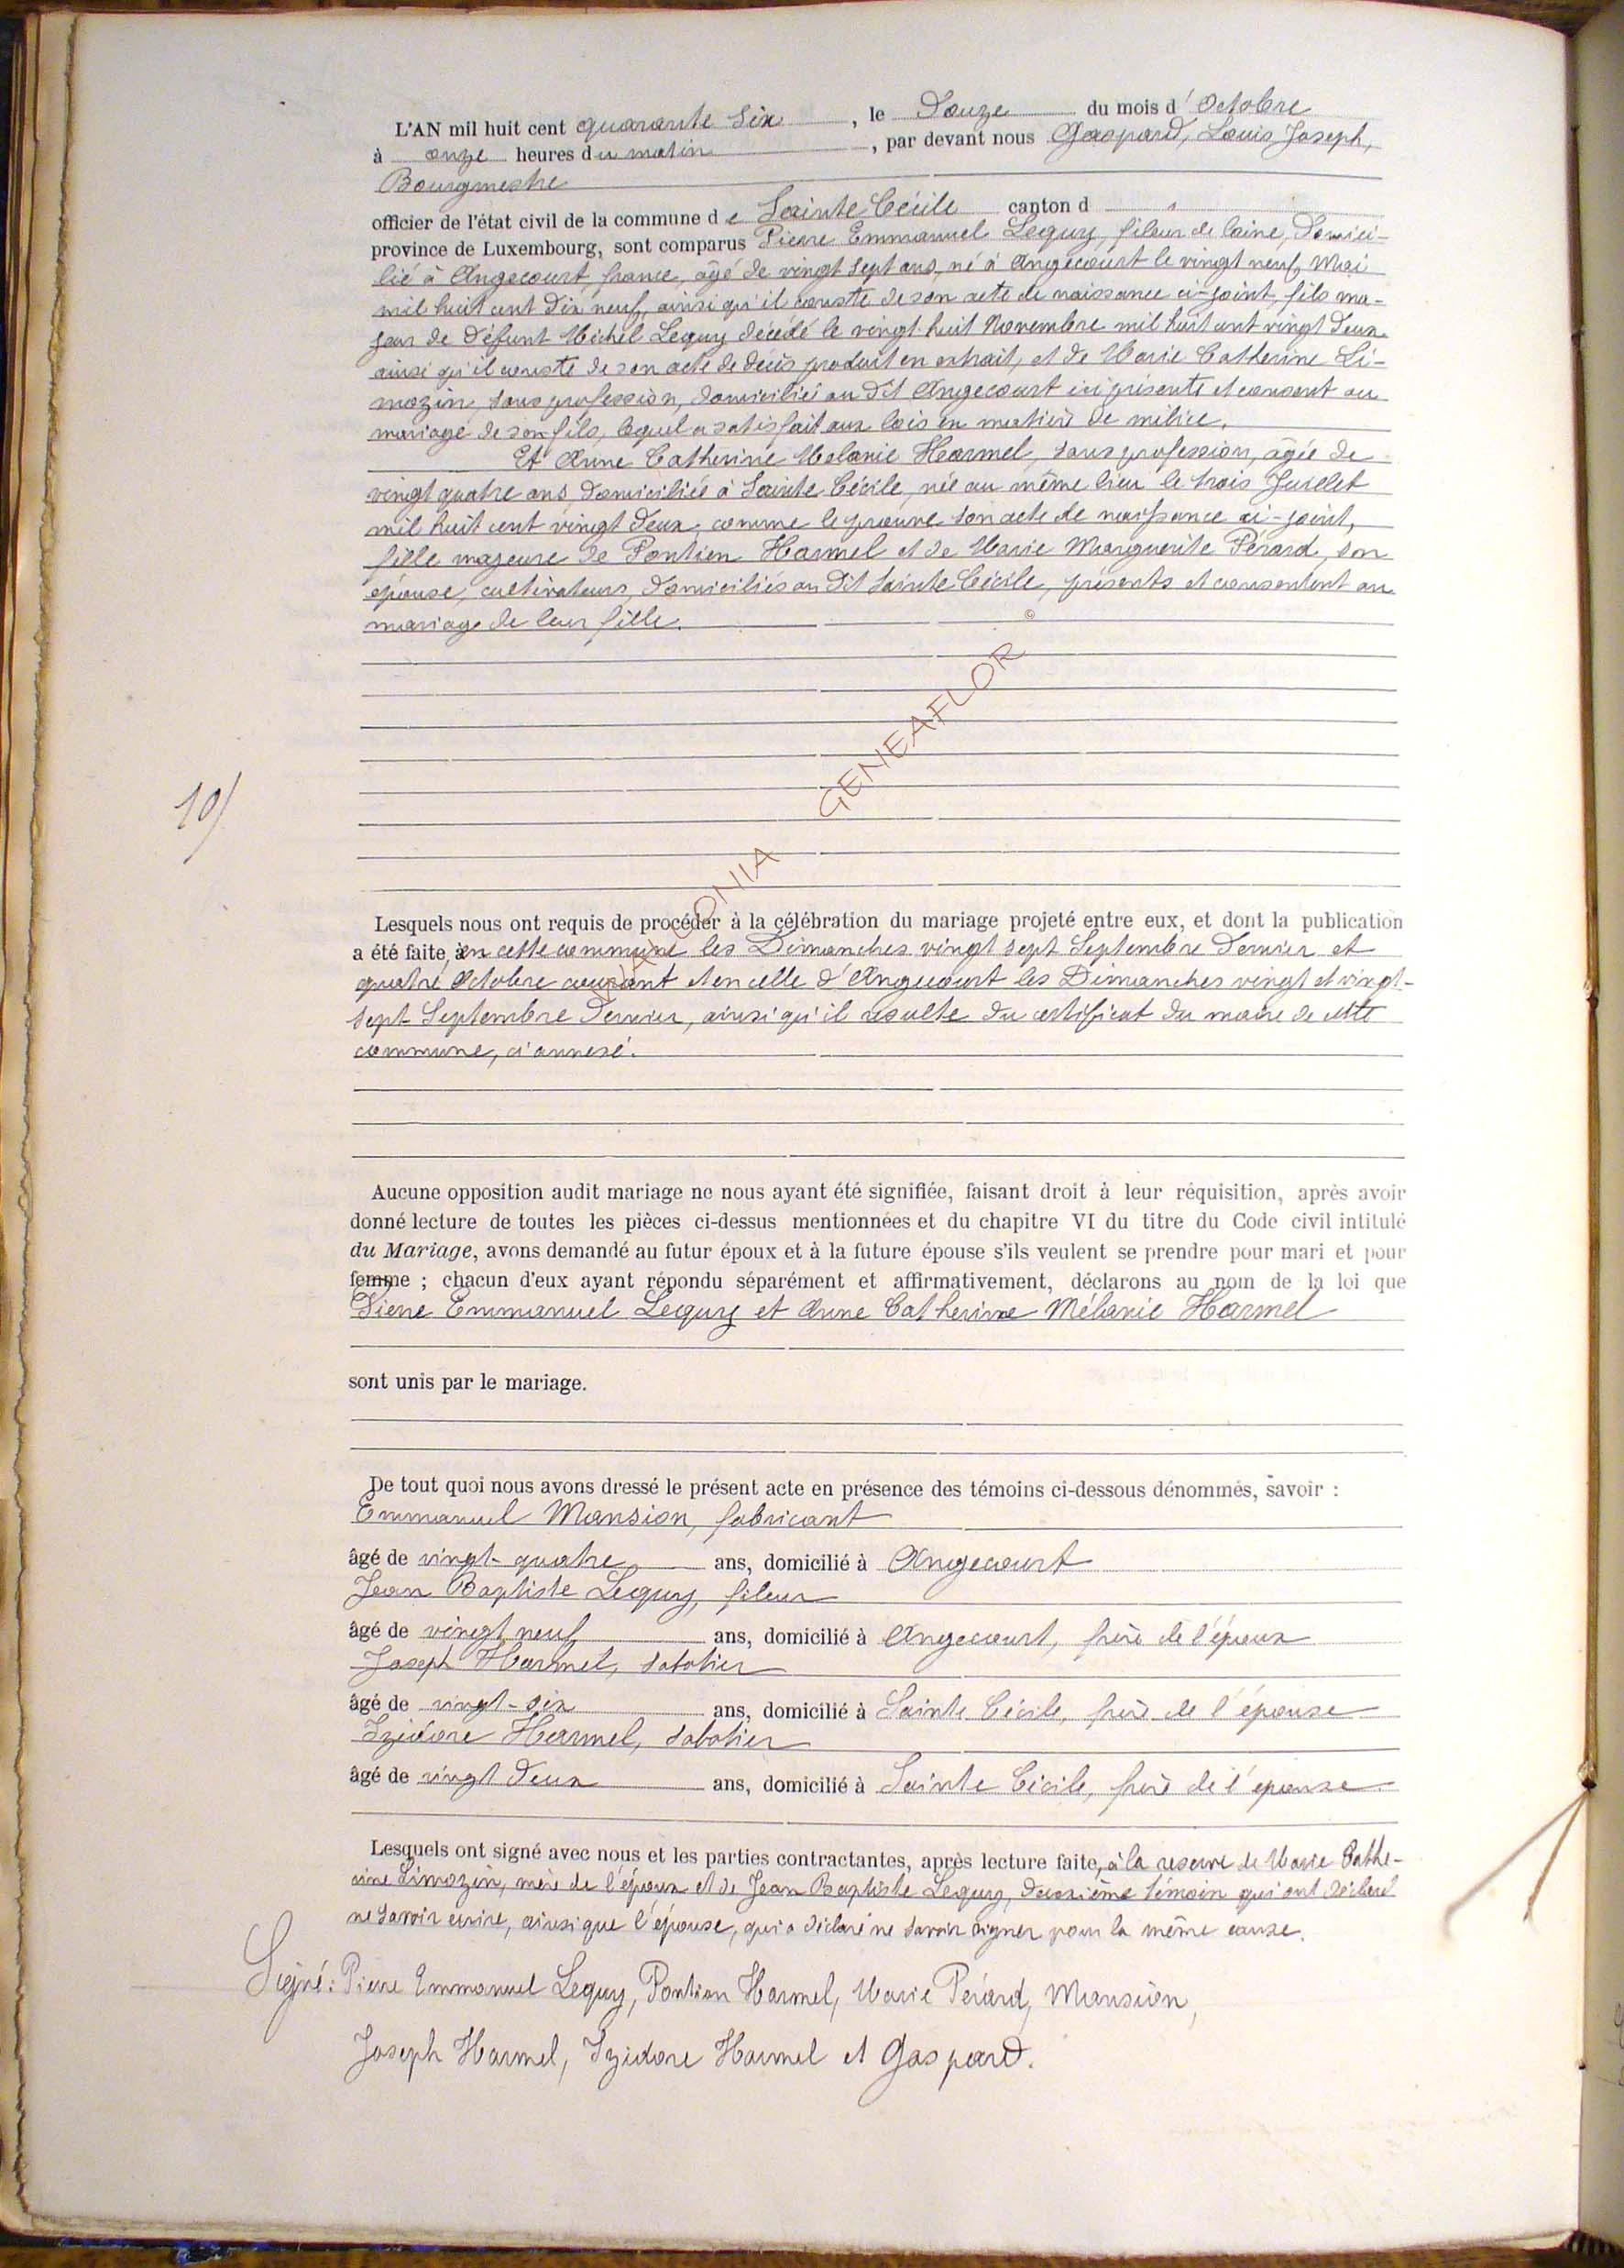 L'AN mil huit cent quarante six, le Douze du mois d'Octobre
à onze heures du matin, par devant nous Gaspard, Louis Joseph,
Bourgmestre
officier de l'état civil de la commune de Sainte Cécile canton d
province de Luxembourg, sont comparus Pierre Emmanuel Lequy, fileur de laine, Domici-
lié à Angecourt, france, âgé de vingt sept ans, né à Angecourt le vingt neuf Mai
mil huit cent dix neuf, ainsi qu'il conste de son acte de naissance ci-joint, fils ma-
jeur de défunt Michel Lequy décédé le vingt huit Novembre mil huit cent vingt deux
ainsi qu'il conste de son acte de décès produit en extrait, et de Marie Catherine Li-
mozin, sans profession, domiciliée au dit Angecourt ici présente et consent au
mariage de son fils, lequel a satisfait aux lois en matière de milice.
Et Anne Catherine Melanie Harmel, sans profession, âgée de
vingt quatre ans domiciliée à Sainte Cécile, née au même lieu le trois Juillet
mil huit cent vingt deux, comme le prouve son acte de naissance ci-joint,
fille majeure de Pontien Harmel et de Marie Marguerite Pérard, son
épouse, cultivateurs, domiciliés au dit Sainte Cécile, présents et consentent au
mariage de leur fille.
©
GENEAFLOR
10/
Lesquels nous ont requis de procéder à la célébration du mariage projeté entre eux, et dont la publication
a été faite, en cette commune les Dimanches vingt sept Septembre dernier et
quatre Octobre courant et en celle d'Angecourt les Dimanches vingt et vingt-
sept Septembre dernier, ainsi qu'il résulte du certificat du maire de cette
commune, ci annexé.
Aucune opposition audit mariage ne nous ayant été signifiée, faisant droit à leur réquisition, après avoir
donné lecture de toutes les pièces ci-dessus mentionnées et du chapitre VI du titre du Code civil intitulé
du Mariage, avons demandé au futur époux et à la future épouse s'ils veulent se prendre pour mari et pour
femme ; chacun d'eux ayant répondu séparément et affirmativement, déclarons au nom de la loi que
Pierre Emmanuel Lequy et Anne Catherine Mélanie Harmel
sont unis par le mariage.
De tout quoi nous avons dressé le présent acte en présence des témoins ci-dessous dénommés, savoir :
Emmanuel Mansion, fabricant
âgé de vingt-quatre ans, domicilié à Angecourt
Jean Baptiste Lequy, fileur
âgé de vingt neuf ans, domicilié à Angecourt, frère de l'époux
Joseph Harmel, sabotier
âgé de vingt-six ans, domicilié à Sainte Cécile, frère de l'épouse
Izidore Harmel, sabotier
âgé de vingt deux ans, domicilié à Sainte Cécile, frère de l'épouse
Lesquels ont signé avec nous et les parties contractantes, après lecture faite, à la reserve de Marie Cathe-
rine Limozin, mère de l'époux et de Jean Baptiste Lequy, deuxième témoin qui ont déclaré
ne savoir écrire, ainsi que l'épouse, qui a déclaré ne savoir signer pour la même cause.
Signé : Pierre Emmanuel Lequy, Pontien Harmel, Marie Pérard, Mansion,
Joseph Harmel, Izidore Harmel et Gaspard.